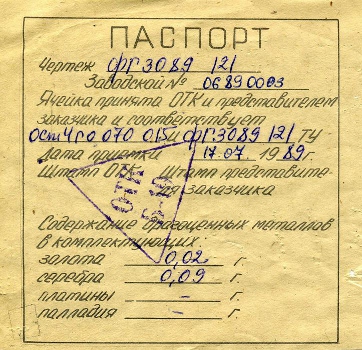 ПАСПОРТ
Чертеж фг3089 121
Заводской № 0689 0003
Ячейка принята ОТК и представителем
заказчика и соответствует
ост 4 го 070 015 и фг3089 121 ТУ
Дата приемки 17.07. 1989г.
Штамп ОТК Штамп представите-
ля заказчика
ОТК
5-10
Содержание драгоценных металлов
в комплектующих:
золота 0,02 г.
серебра 0,09 г.
платины – г.
палладия – г.